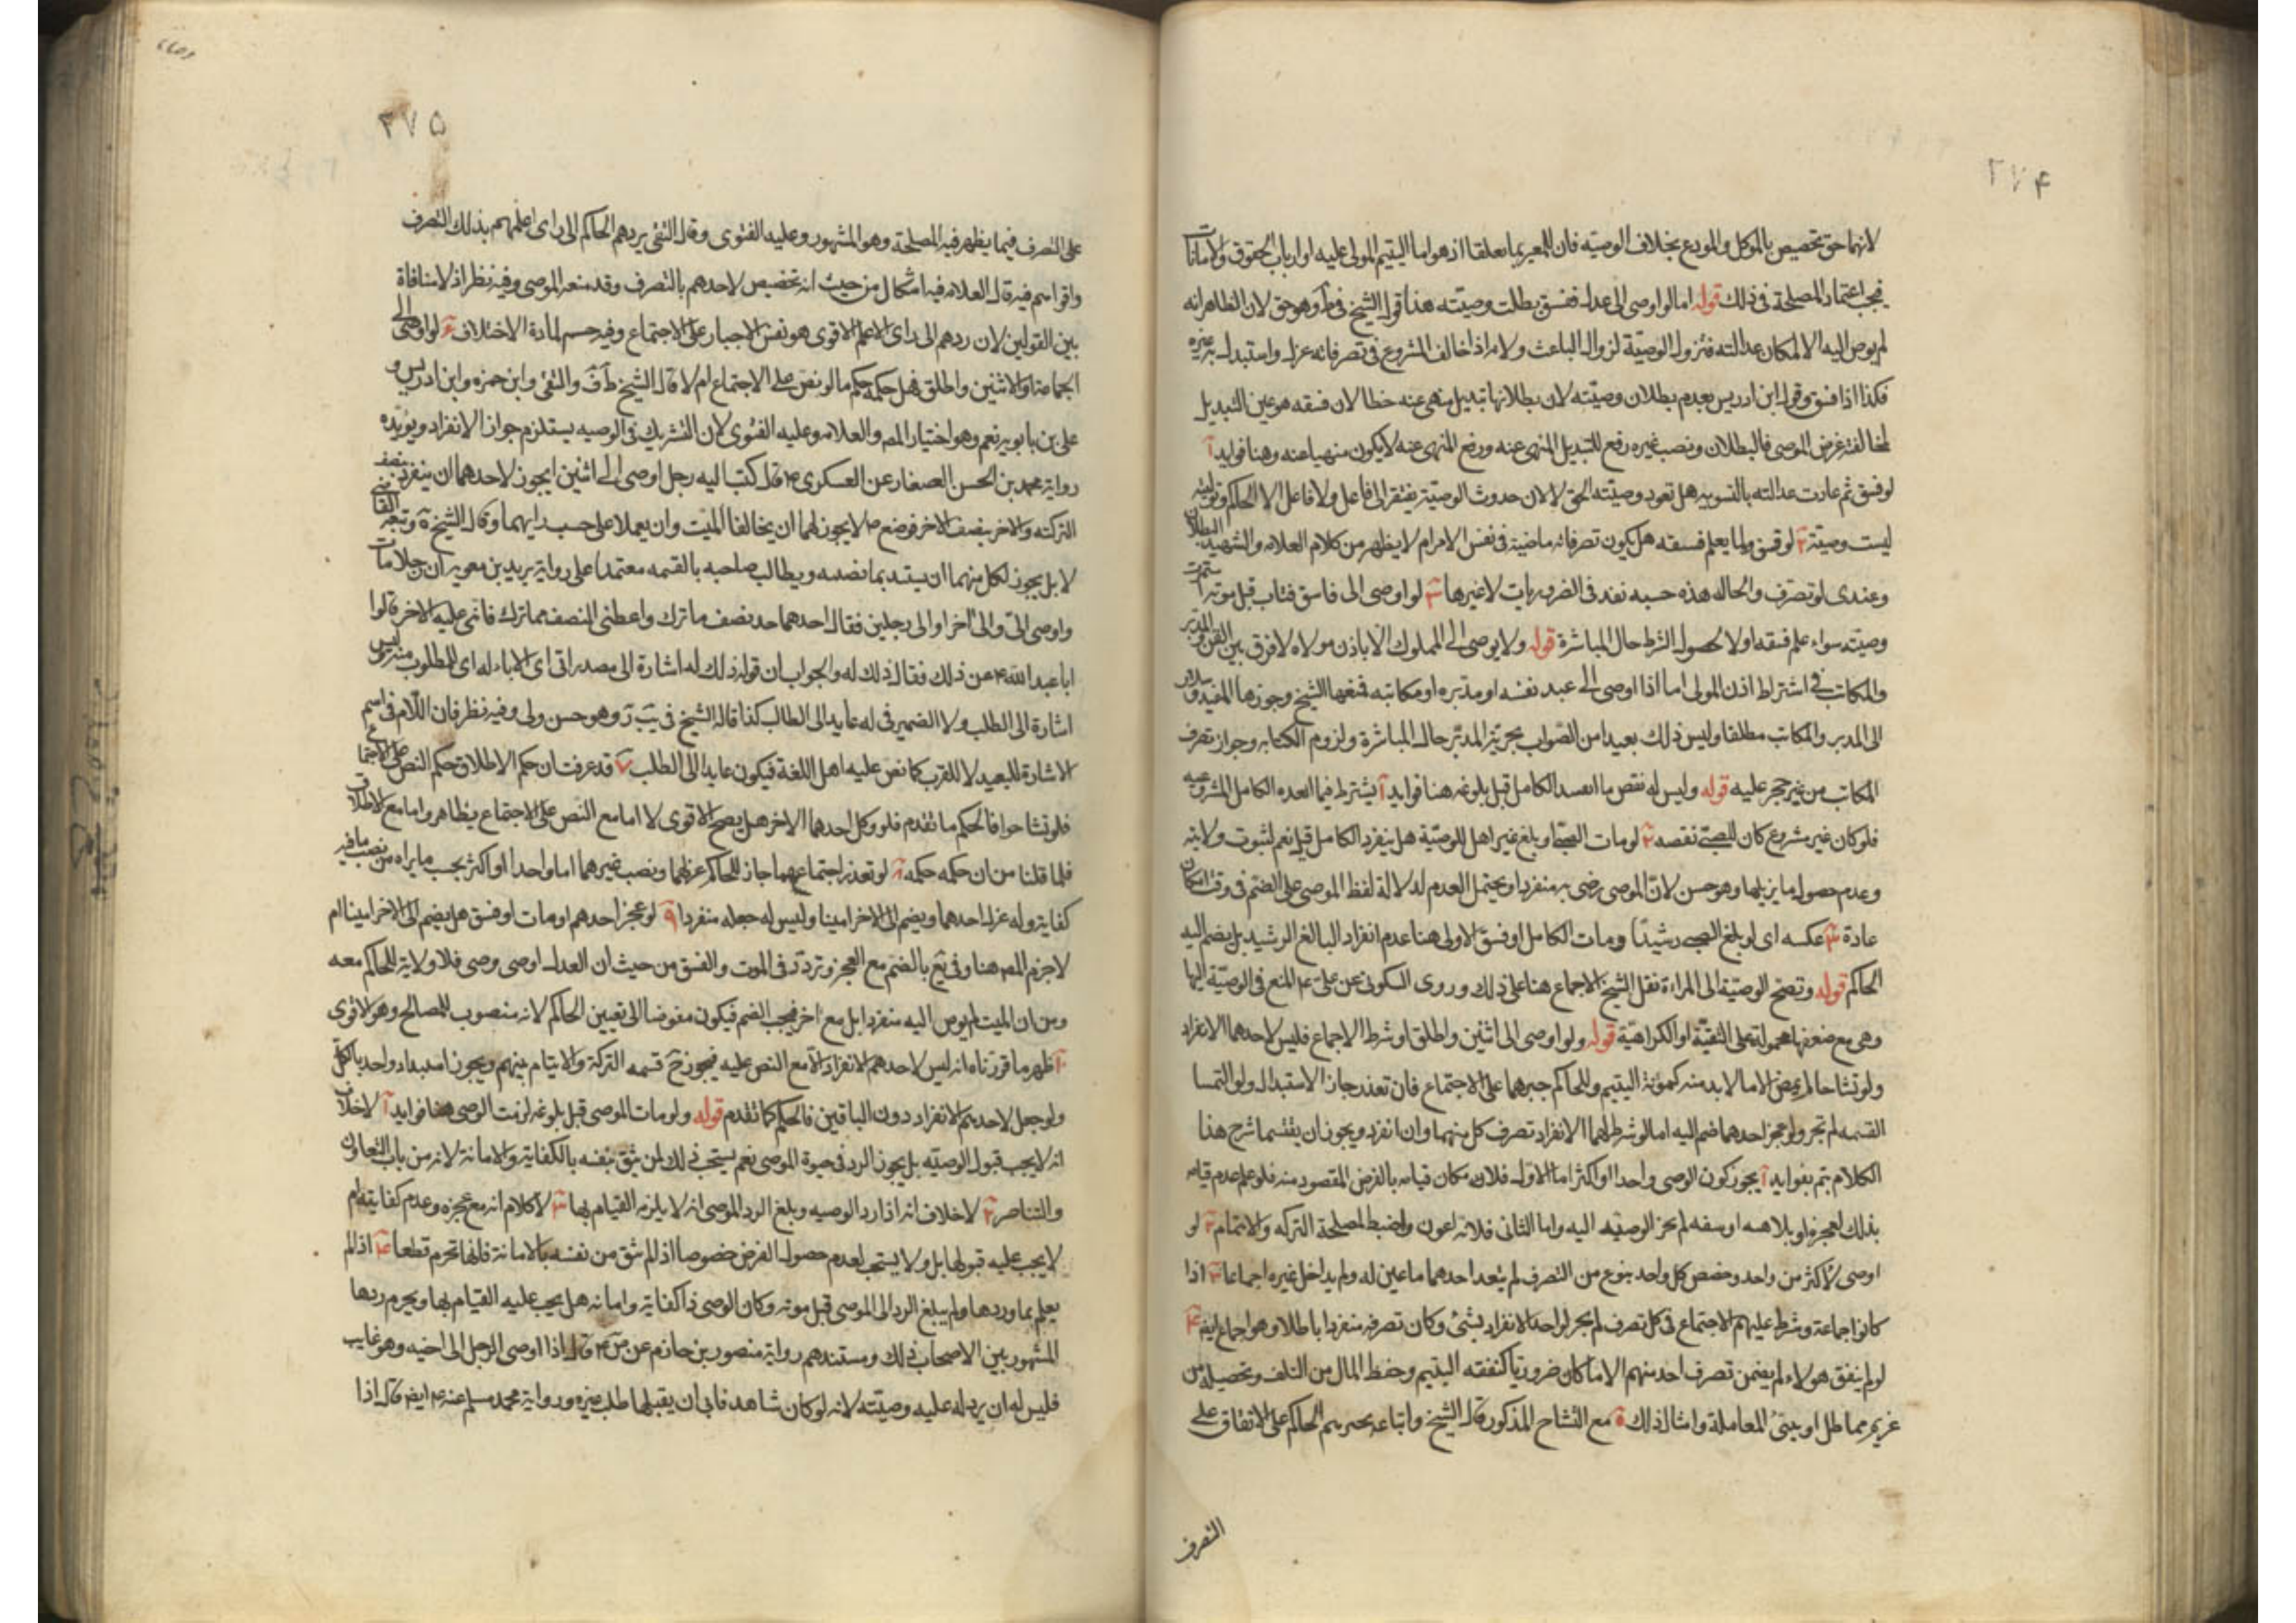 ٢٧۴
لانهما حق تخصيص بالموكل والمودع بخلاف الوصيته فان للغير بها تعلقا اذ هو اما اليتيم المولى عليه او ارباب الحقوق والامانات
فيجب اعتماد المصلحة فى ذلك قوله اما لو اوصى الى عدل ففسق بطلت وصيته هذا قول الشيخ فى ط وهو حق لان الظاهر انه
لم يوص اليه الا لمكان عدالته فتزول الوصيّة لزوال الباعث ولانه اذا خالف المشروع فى تصرفاته عزل واستبدل به غيره
فكذا اذا فسق وقول ابن ادريس بعدم بطلان وصيته لان بطلانها تبديل منهى عنه خطا لان فسقه هو عين التبديل
لمخالفته غرض الموصى فالبطلان ونصب غيره رفع للتبديل المنهى عنه ورفع المنهى عنه لا يكون منهيا عنه وهنا فوايد آ
لو فسق ثم عادت عدالته بالتوبه هل تعود وصيته الحق لا لان حدوث الوصيّة يفتقر الى فاعل ولا فاعل الا الحاكم وتوليته
ليست وصيته ٢ لو فسق ولما يعلم فسقه هل يكون تصرفاته ماضية فى نفس الامر ام لا يظهر من كلام العلامه والشهيد البطلان
وعندى لو تصرف والحاله هذه حسبه نفذ فى الضروريات لا غيرها ٣ لو اوصى الى فاسق فتاب قبل موته استمرت
وصيته سواء علم فسقه او لا لحصول الشرط حال المباشرة قوله ولا يوصى الى المملوك الا باذن مولاه لا فرق بين القن والمدبر
والمكاتب فى اشتراط اذن المولى اما اذا اوصى الى عبد نفسه او مدبره او مكاتبه فمنعها الشيخ وجوزها المفيد وسلار
الى المدبر والمكاتب مطلقا وليس ذلك بعيدا من الصّواب بحريّة المدبّر حال المباشرة ولزوم الكتابه وجواز تصرف
المكاتب من غير حجر عليه قوله وليس له نقص ما انفذ الكامل قبل بلوغه هنا فوايد آ يشترط فيما انفذه الكامل المشروعيه
فلو كان غير مشروع كان للصبىّ نقصه ٢ لو مات الصبىّ او بلغ غير اهل للوصيّة هل ينفرد الكامل قيل نعم لثبوت ولايته
وعدم حصول ما يزيلها وهو حسن لانّ الموصى رضى به منفردا ويحتمل العدم لدلالة لفظ الموصى على الضم فى وقت امكان
عادة ٣ عكسه اى لو بلغ الصبى رشيدًا ومات الكامل او فسق الاولى هنا عدم انفراد البالغ الرشيد بل يضم اليه
الحاكم قوله وتصح الوصيّة الى المراءة نقل الشيخ الاجماع هنا على ذلك وروى السكونى عن على ع المنع فى الوصيّة اليها
وهى مع ضعفها محمولة على التقيّة او الكراهيّة قوله ولو اوصى الى اثنين واطلق او شرط الاجماع فليس لاحدهما الانفراد
ولو تشاحا لم يمض الا ما لا بد منه كمؤنة اليتيم وللحاكم جبرهما على الاجتماع فان تعذر جاز الاستبدال ولو التمسا
القسمه لم تجز ولو عجز احدهما ضم اليه اما لو شرط لهما الانفراد تصرف كل منهما وان انفرد ويجوز ان يقتسما شرح هذا
الكلام يتم بفوايد آ يجوز كون الوصى واحدا او اكثر اما الاول فلان مكان قيامه بالغرض المقصود منه فلو علم عدم قيامه
بذلك لعجزه او بلاهه او سفه لم يجز الوصيّه اليه واما الثانى فلانه اعون واضبط لمصلحة التركه والايتام ٢ لو
اوصى لاكثر من واحد وخصص كل واحد بنوع من التصرف لم يتعد احدهما ما عين له ولم يداخل غيره اجماعا ٣ اذا
كانوا جماعة وشرط عليهم الاجتماع فى كل تصرف لم يجز لواحد الانفراد بشئ وكان تصرفه منفردا باطلا وهو اجماع ايضا ۴
لو لم يتفق هولاء لم يمض من تصرف احد منهم الا ما كان ضروريا كنفقه اليتيم وحفظ المال من التلف وتحصيله من
غريم مماطل او سىّئ المعاملة وامثال ذلك ۵ مع التشاح المذكور قال الشيخ واتباعه يجبرهم الحاكم على الاتفاق على
التصرف
٢٧۵
على التصرف فيما يظهر فيه المصلحة وهو المشهور وعليه الفتوى وقال التقى يردهم الحاكم الى راى اعلمهم بذلك التصرف
واقواهم فيه قال العلامه فيه اشكال من حيث انه تخصيص لاحدهم بالتصرف وقد منعه الموصى وفيه نظر اذ لا منافاة
بين القولين لان ردهم الى راى الاعلم الاقوى هو نفس الاجبار على الاجتماع وفيه حسم لمادة الاختلاف ۶ لو اوصى الى
الجماعة او الاثنين واطلق فهل حكمه حكم ما لو نص على الاجتماع ام لا قال الشيخ ط ف والتقى وابن حمزه وابن ادريس و
على بن بابويه نعم وهو اختيار المصـ والعلامه وعليه الفتوى لان التشريك فى الوصيه يستلزم جواز الانفراد ويؤيّده
رواية محمد بن الحسن الصفار عن العسكرى ع قال كتب اليه رجل اوصى الى اثنين ايجوز لاحدهما ان ينفرد بنصف
التركه والاخر بنصف الاخر فوقع ع لا يجوز لهما ان يخالفا الميّت وان يعملا على حسب ما امرهما وقال الشيخ يه وتبعه القاضى
لا بل يجوز لكل منهما ان يستبد بما نصبه ويطالب صاحبه بالقسمه معتمدا على رواية بريد بن معويه ان رجلا مات
واوصى الىّ والى اخر او الى رجلين فقال احدهما خذ نصف ما ترك واعطنى النصف مما ترك فابى عليه الاخر فسالوا
ابا عبد الله ع عن ذلك فقال ذلك له والجواب ان قوله ذلك له اشارة الى مصدر ابى اى الاباء له اى المطلوب منه وليس
اشارة الى الطلب ولا الضمير فى له عايد الى الطالب كذا قاله الشيخ فى يب ر وهو حسن ولى وفيه نظر فان اللّام فى اسم
الاشارة للبعيد لا للقرب كما نص عليه اهل اللغة فيكون عايدا الى الطلب ٧ قد عرفت ان حكم الاطلاق حكم النص على الاجتماع
فلو تشاحوا فالحكم ما تقدم فلو وكل احدهما الاخر هل يصح الاقوى لا اما مع النص على الاجتماع فظاهر واما مع الاطلاق
فلما قلنا من ان حكمه حكمه ٨ لو تعذر اجتماعهما جاز للحاكم عزلهما ونصب غيرهما اما واحدا او اكثر بحسب ما يراه من نصب ما فيه
كفاية وله عزل احدهما ويضم الى الاخر امينا وليس له جعله منفردا ٩ لو عجز احدهم او مات او فسق هل يضم الى الاخر امينا ام
لا جزم المصـ هنا وفى يع بالضم مع العجز وتردّد فى الموت والفسق من حيث ان العدل اوصى وصى فلا ولاية للحاكم معه
ومن ان الميت لم يوص اليه منفردا بل مع اخر فيجب الضم فيكون مفوضا الى تعيين الحاكم لانه منصوب للمصالح وهو الاقوى
ظهر ما قررناه انه ليس لاحدهم الانفراد الا مع النص عليه فيجوز ح قسمه التركة والايتام بينهم ويجوز استبداد واحد بالكلّ
ولو جعل لاحدهم الانفراد دون الباقين فالحكم كما تقدم قوله ولو مات الموصى قبل بلوغه لزمت الوصى هنا فوايد آ لا خلاف
انه لا يجب قبول الوصيّه بل يجوز الرد فى حيوة الموصى نعم يستحب ذلك لمن يثق بنفسه بالكفاية والامانة لانه من باب التعاون
والتناصر ٢ لا خلاف انه اذا رد الوصيه وبلغ الرد الموصى انه لا يلزمه القيام بها ٣ لا كلام انه مع عجزه وعدم كفايته ام
لا يجب عليه قبولها بل ولا يستحب لعدم حصول الغرض خصوصا اذا لم يثق من نفسه بالامانة فانها تحرم قطعا ۴ اذا لم
يعلم بها وردها ولم يبلغ الرد الى الموصى قبل موته وكان الوصى ذا كفاية وامانه هل يجب عليه القيام بها ويحرم ردها
المشهور بين الاصحاب ذلك ومستندهم رواية منصور بن حازم عن ص ع قال اذا اوصى الرجل الى اخيه وهو غايب
فليس له ان يرد له عليه وصيّته لانه لو كان شاهد فابى ان يقبلها طلب غيره ورواية محمد مسلم عنه ع ايضا قال اذا